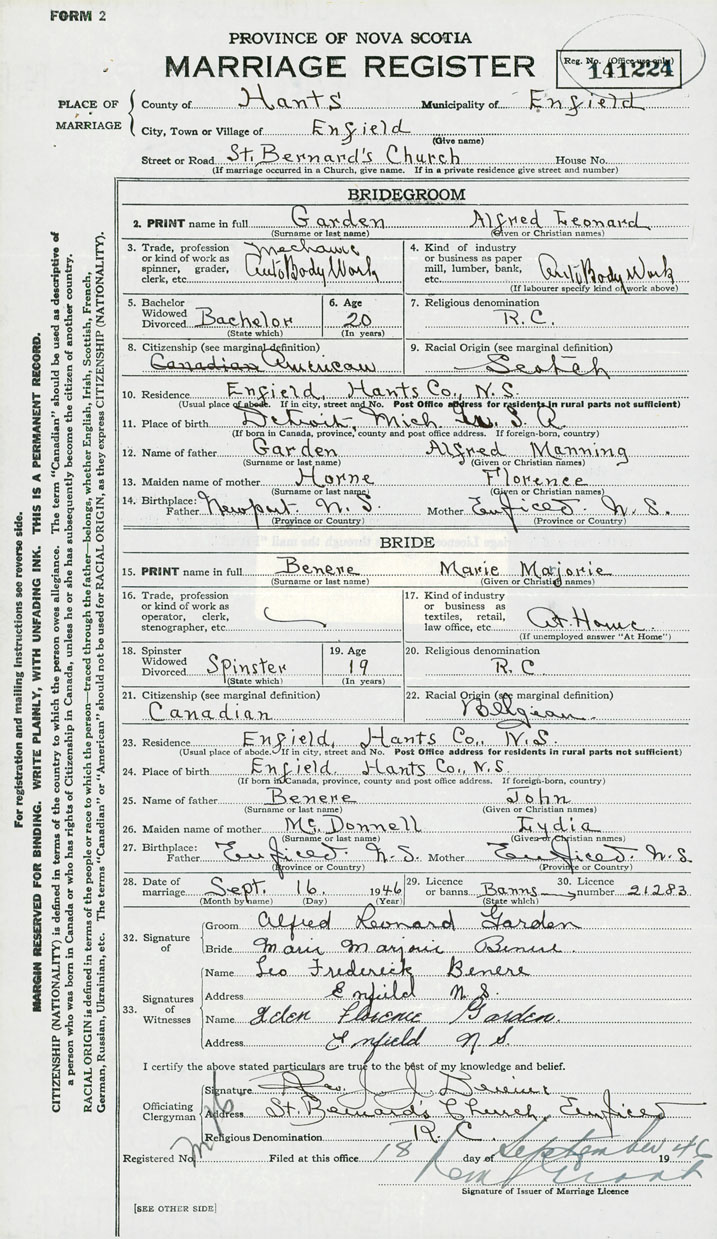 FORM 2
PROVINCE OF NOVA SCOTIA
MARRIAGE REGISTER
Reg. No. (Office use only)
141224
PLACE OF MARRIAGE
County of Hants Municipality of Enfield
City, Town or Village of Enfield
(Give name)
Street or Road St. Bernard's Church House No.
(If marriage occurred in a Church, give name. If in a private residence give street and number)
BRIDEGROOM
2. PRINT name in full Garden Alfred Leonard
(Surname or last name) (Given or Christian names)
3. Trade, profession or kind of work as spinner, grader, clerk, etc. Mechanic Auto Body Work
4. Kind of industry or business as paper mill, lumber, bank, etc. Auto Body Work
(If labourer specify kind of work above)
5. Bachelor Widowed Divorced Bachelor
(State which)
6. Age 20
(In years)
7. Religious denomination R.C.
8. Citizenship (see marginal definition) Canadian American
9. Racial Origin (see marginal definition) Scotch
10. Residence Enfield, Hants Co., N.S.
(Usual place of abode. If in city, street and No. Post Office address for residents in rural parts not sufficient)
11. Place of birth Detroit, Mich U.S.A.
(If born in Canada, province, county and post office address. If foreign-born, country)
12. Name of father Garden Alfred Manning
(Surname or last name) (Given or Christian names)
13. Maiden name of mother Horne Florence
(Surname or last name) (Given or Christian names)
14. Birthplace: Father Newport N.S. Mother Enfield N.S.
(Province or Country) (Province or Country)
BRIDE
15. PRINT name in full Benere Marie Majorie
(Surname or last name) (Given or Christian names)
16. Trade, profession or kind of work as operator, clerk, stenographer, etc.
17. Kind of industry or business as textiles, retail, law office, etc. At Home
(If unemployed answer "At Home")
18. Spinster Widowed Divorced Spinster
(State which)
19. Age 19
(In years)
20. Religious denomination R.C
21. Citizenship (see marginal definition) Canadian
22. Racial Origin (see marginal definition) Belgian
23. Residence Enfield, Hants Co., N.S.
(Usual place of abode. If in city, street and No. Post Office address for residents in rural parts not sufficient)
24. Place of birth Enfield. Hants Co., N.S.
(If born in Canada, province, county and post office address. If foreign-born, country)
25. Name of father Benere John
(Surname or last name) (Given or Christian names)
26. Maiden name of mother McDonnell Lydia
(Surname or last name) (Given or Christian names)
27. Birthplace: Father Enfield N.S. Mother Enfield N.S
(Province or Country) (Province or Country)
28. Date of marriage Sept. 16. 1946
(Month by name) (Day) (Year)
29. Licence or banns Banns
(State which)
30. Licence number 21283
32. Signature of
Groom Alfred Leonard Garden
Bride Marie Marjorie Benere
33. Signatures of Witnesses
Name Leo Frederick Benere
Address Enfield N.S.
Name Florence Garden.
Address Enfield N.S.
I certify the above stated particulars are true to the best of my knowledge and belief.
Officiating Clergyman
Signature Rev. J. J.
Address St. Bernard's Church, Enfield
Religious Denomination R.C.
Registered No. Filed at this office 18 day of September 1946
Signature of Issuer of Marriage Licence
[SEE OTHER SIDE]
For registration and mailing instructions see reverse side.
MARGIN RESERVED FOR BINDING. WRITE PLAINLY, WITH UNFADING INK. THIS IS A PERMANENT RECORD.
CITIZENSHIP (NATIONALITY) is defined in terms of the country to which the person owes allegiance. The term "Canadian" should be used as descriptive of
a person who was born in Canada or who has rights of Citizenship in Canada, unless he or she has subsequently become the citizen of another country.
RACIAL ORIGIN is defined in terms of the people or race to which the person—traced through the father—belongs, whether English, Irish, Scottish, French,
German, Russian, Ukrainian, etc. The terms "Canadian" or "American" should not be used for RACIAL ORIGIN, as they express CITIZENSHIP (NATIONALITY).